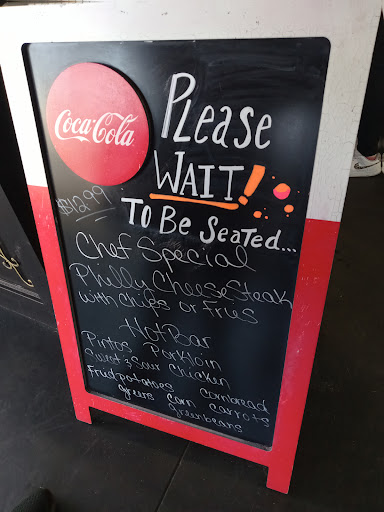 Coca-Cola
Please
WAIT!
To Be Seated...
$12.99
Chef Special
Philly Cheese Steak
with Chips or Fries
Hot Bar
Pintos Porkloin
Sweet & Sour Chicken
Fried potatoes Cornbread
greens corn carrots
greenbeans